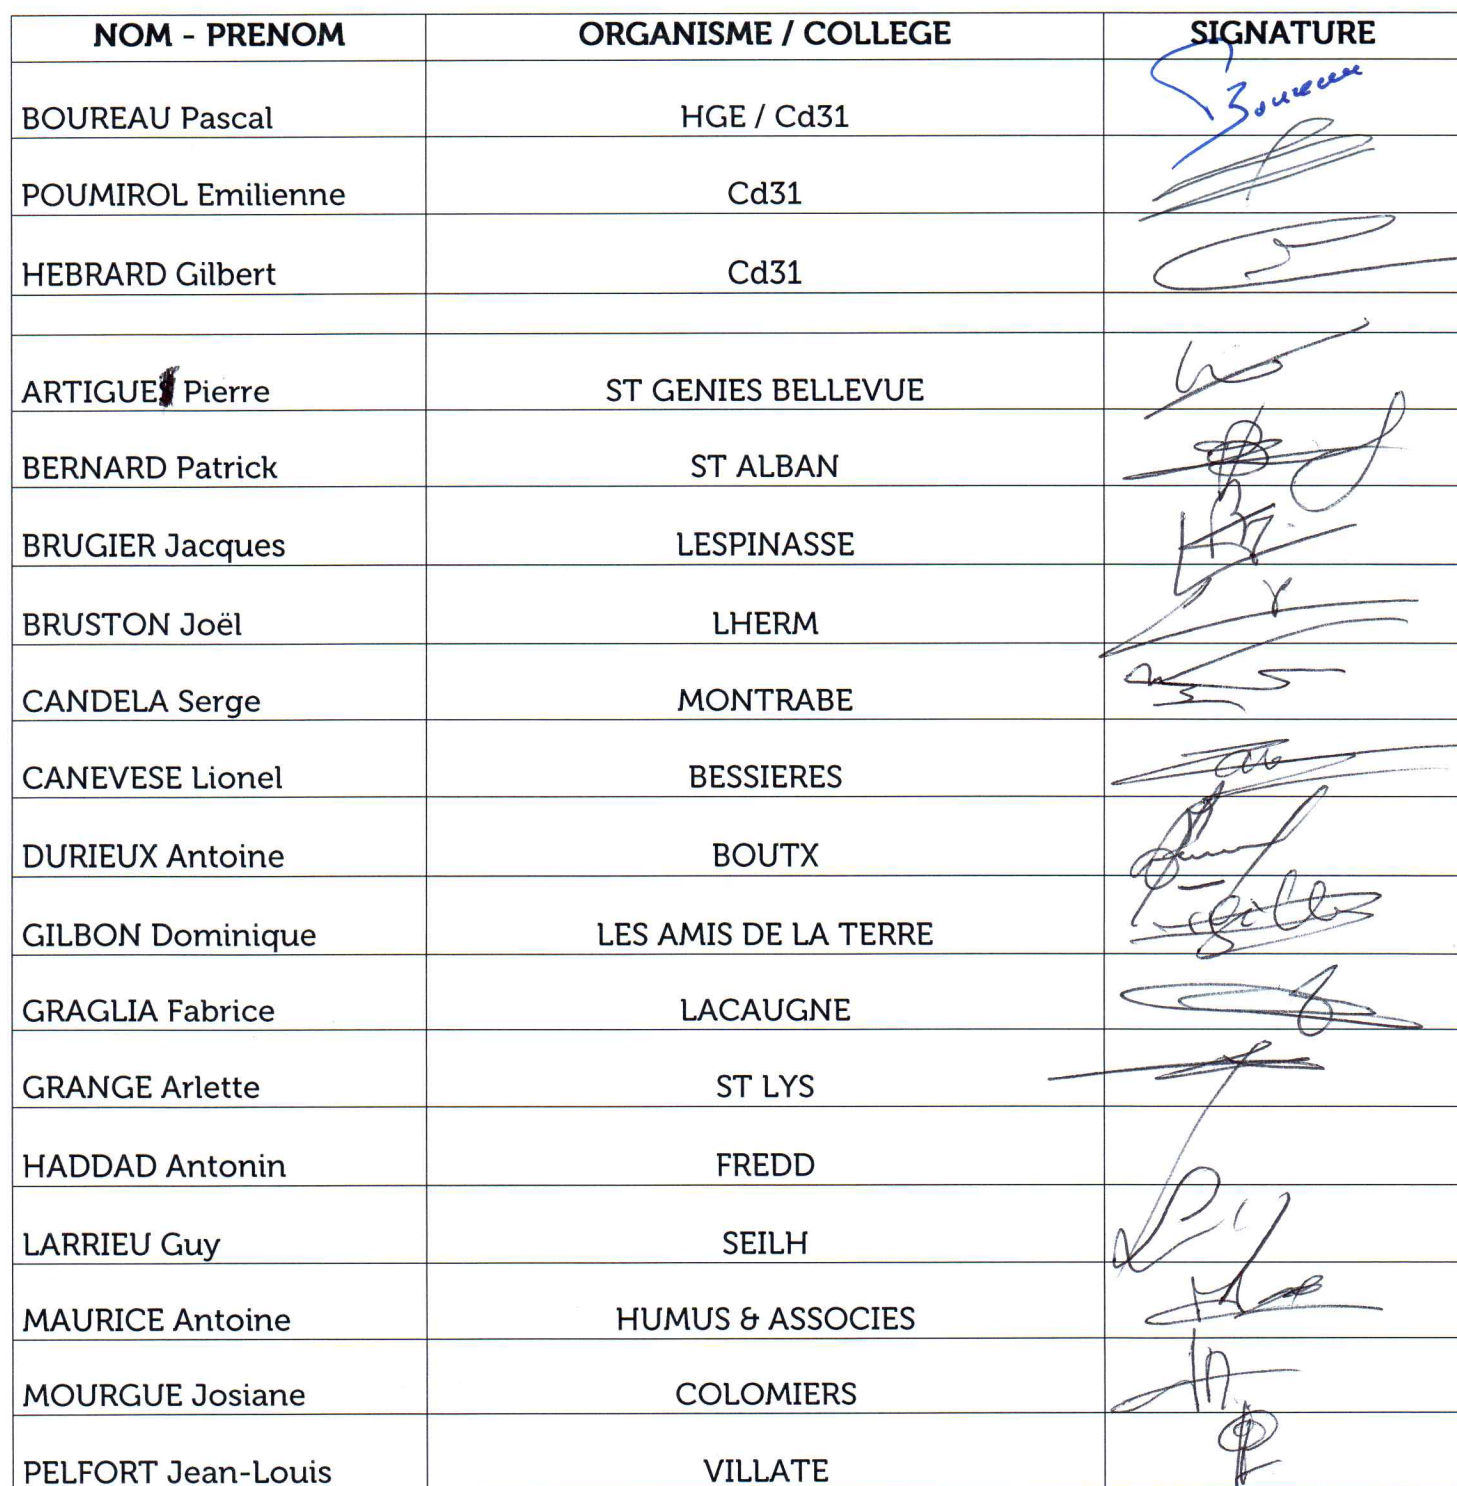 NOM - PRENOM ORGANISME / COLLEGE SIGNATURE
BOUREAU Pascal HGE / Cd31 Boureau
POUMIROL Emilienne Cd31
HEBRARD Gilbert Cd31
ARTIGUE Pierre ST GENIES BELLEVUE
BERNARD Patrick ST ALBAN
BRUGIER Jacques LESPINASSE
BRUSTON Joël LHERM
CANDELA Serge MONTRABE
CANEVESE Lionel BESSIERES
DURIEUX Antoine BOUTX
GILBON Dominique LES AMIS DE LA TERRE
GRAGLIA Fabrice LACAUGNE
GRANGE Arlette ST LYS
HADDAD Antonin FREDD
LARRIEU Guy SEILH
MAURICE Antoine HUMUS & ASSOCIES
MOURGUE Josiane COLOMIERS
PELFORT Jean-Louis VILLATE